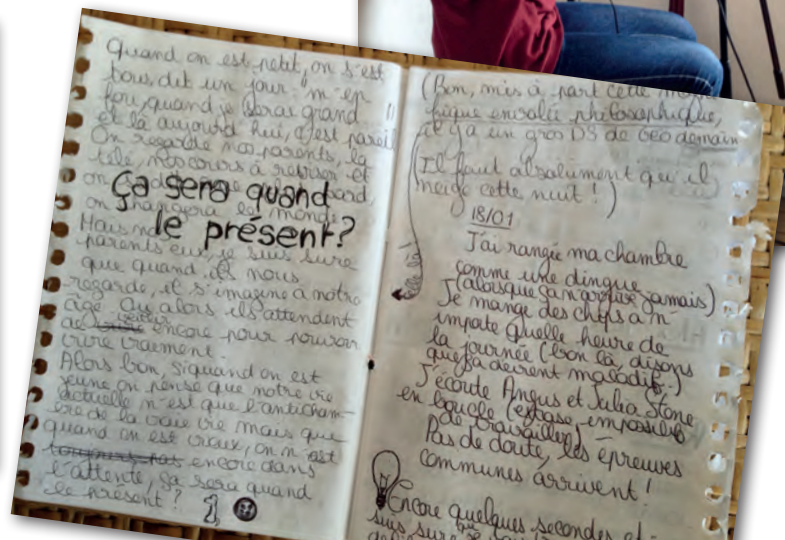 Quand on est petit, on s'est
tous dit un jour "m'en
fou, quand je serai grand"
et là aujourd'hui, c'est pareil
On regarde nos parents, la
télé, nos cours à réviser et
on
on imaginera le monde.
Ça sera quand
le présent?
Mais nos
parents eux, je suis sure
que quand ils nous
regarde, et s'imagine à notre
âge. Ou alors ils attendent
encore pour pouvoir
vivre vraiment.
Alors bon, si quand on est
jeune on pense que notre vie
actuelle n'est que l'anticham-
bre de la vraie vie mais que
quand on est vieux, on n'est
toujours pas encore dans
l'attente, ça sera quand
le présent?
(Bon, mis à part cette
envolée philosophique,
il y a un gros DS de Géo demain
(Il faut absolument qu'il
neige cette nuit!)
18/01
J'ai rangée ma chambre
comme une dingue
(alors que ça n'arrive jamais)
Je mange des chips à n'
importe quelle heure de
la journée (bon là, disons
que ça devient maladif.)
J'écoute Angus et Julia Stone
en boucle (extase, impossible
de travailler)
Pas de doute, les épreuves
communes arrivent!
Encore quelques secondes et
suis sure